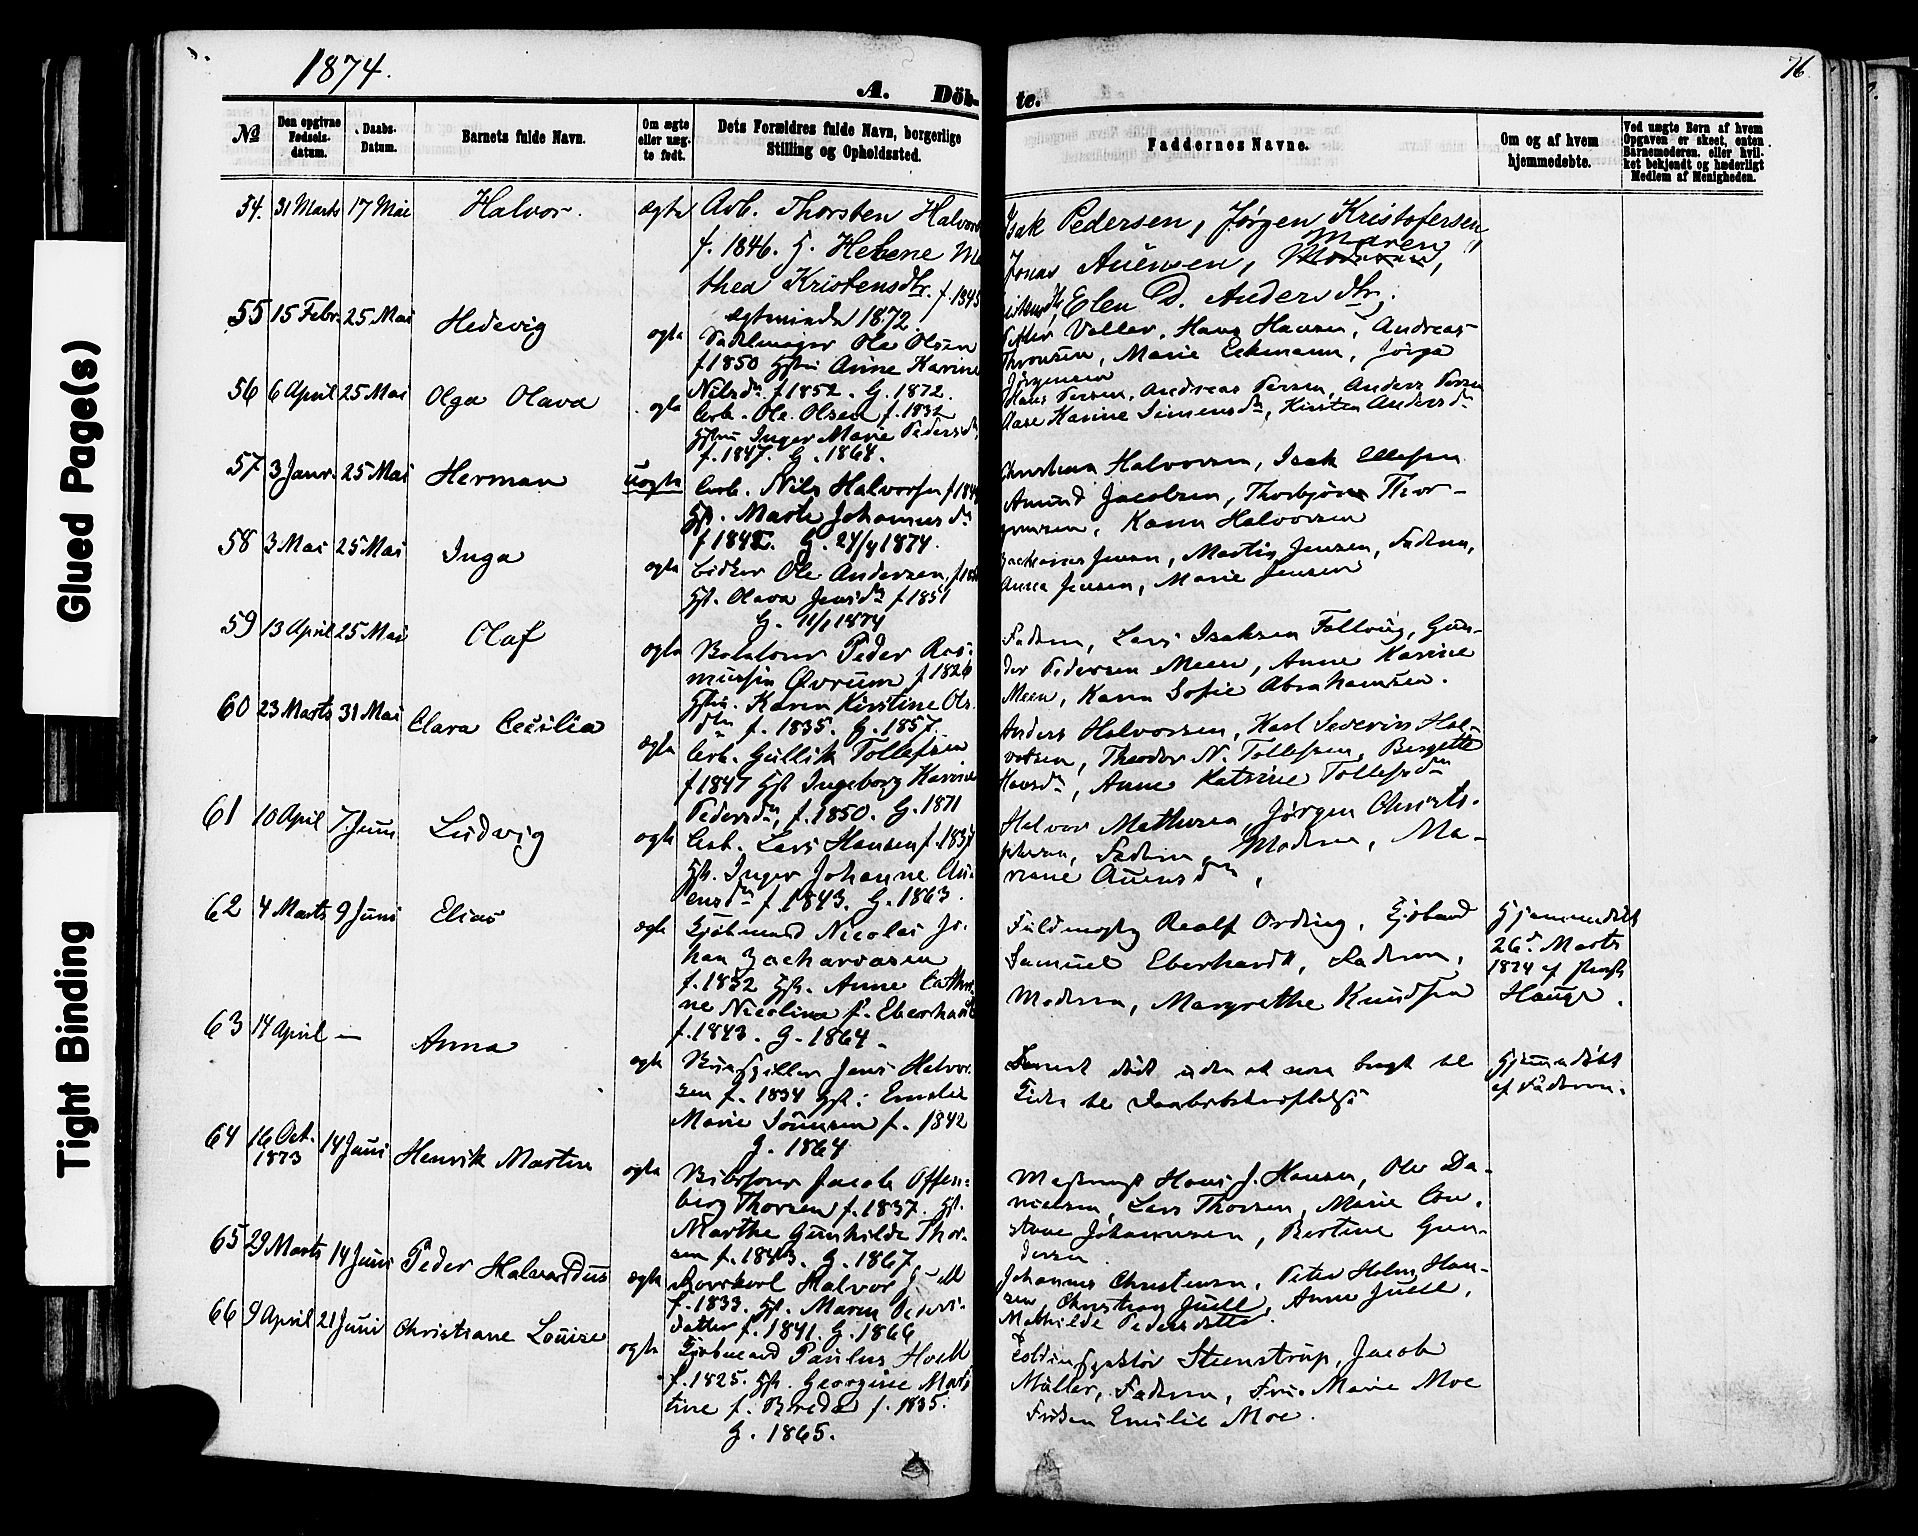 1874.
76.
A. Döb-
te.
№
Den opgivne Fødsels-datum.
Daabs-Datum.
Barnets fulde Navn.
Om ægte eller uæg-te født.
Dets Forældres fulde Navn, borgerlige Stilling og Opholdssted.
Faddernes Navne.
Om og af hvem hjemmedøbte.
Ved uægte Børn af hvem Opgaven er skeet, enten Barnemoderen, eller hvil-ket bekjendt og hæderligt Medlem af Menigheden.
54. 31 Marts 17 Mai Halvor. ægte Arb. Thorsten Halvors
f. 1846. H. Helene Ma
thea Kristensdtr. f. 1845
ægteviede 1872.
Isak Pedersen, Jørgen Kristofersen,
Jonas Auensen, Maren
Elen D. Andersdtr.
55 15 Febr. 25 Mai Hedevig ægte Sadelmager Ole Olsen
f 1850 Hstru Anne Karine
Nilsdtr f 1852. G. 1872.
Petter Valler, Hans Hansen, Andreas
Thronsen, Marie Eckmann, Jørga
Jørgensen
56 6 April 25 Mai Olga Olava ægte Arb. Ole Olsen f. 1832
Hstru Inger Marie Pedersdtr
f. 1847. G. 1868.
Hans Persen, Andreas Persen, Anders Persen
Aase Karine Simensdtr, Kirsten Andersdtr
57 3 Janr. 25 Mai Herman uægte Arb. Nils Halvorsen f 184
Hst. Marte Johannesdtr
f 1842. G. 24/4 1874.
Christian Halvorsen, Isak Ellefsen
Amund Jacobsen, Thorbjørn Thor-
gimsen, Karen Halvorsen
58 3 Mai 25 Mai Inga ægte Bødker Ole Andersen, f 18
Hst. Olava Jensdtr f 1851
G. 11/1 1874
Zacharias Jensen, Martin Jensen, Faderen,
Anna Jensen, Marie Jensen
59 13 April 25 Mai Olaf ægte Peder Ras-
mussen Øvrum f 1826
Hstru. Karen Kirstine Ols
dtr f. 1835. G. 1857.
Faderen, Lars Isaksen Follvig, Gun-
der Pedersen Meen, Anne Karine
Meen, Karen Sofie Abrahamsen.
60 23 Marts 31 Mai Clara Cecilia ægte Arb. Gullik Tollefsen
f 1847 Hst Ingeborg Karine
Pedersdtr, f. 1850. G. 1871
Anders Halvorsen, Karl Severin Hal-
vorsen, Theodor N. Tollefsen, Bergitte
Hansdtr, Anne Katrine Tollefsdtr
61 10 April 7. Juni Ludvig ægte Arb. Lars Hansen f. 1837
Hst. Inger Johanne Au-
ensdtr f. 1843. G. 1863.
Halvor Mathisen, Jørgen Christo-
phersen, Faderen og Moderen, Ma-
riane Auensdtr,
62 4 Marts 9 Juni Elias ægte Kjøbmand Nicolai Jo-
han Zachariasen
f. 1832 Hst. Anne Cathri-
ne Nicoline f. Eberhardt
f. 1843. G. 1864.
Fuldmægtig Realf Ording, Kjøbmand
Samuel Eberhardt, Faderen,
Moderen, Margrethe Knudsen
Hjemmedøbt
26d. Marts
1874 af Præst
Hauge.
63 14 April — Anna ægte Jens Halvor-
sen f. 1834 Hst: Emelie
Marie Sørensen f. 1842
G. 1864
Barnet død uden at være bragt til
Kirke til Daabsbekræftelse
Hjemmedøbt
af Faderen.
64 16 Oct. 1873 14 Juni Henrik Martin ægte Jacob Offen-
berg Thorsen f. 1837. Hst.
Marthe Gunhilde Thor-
sen f. 1843. G. 1867.
Hans J. Hansen, Ole Da-
nielsen, Lars Thorsen, Marie Con-
stanse Johannesen, Bertine Gun-
dersen
65 29 Marts 14 Juni Peder Halvardus ægte Halvor Juell
f. 1833. Hst. Maren Peders-
datter f. 1841. G. 1866
Johannes Christensen, Peter Holm Han-
sen, Christian Juell, Anne Juell,
Mathilde Pedersdatter
66 9 April 21 Juni Christiane Louise ægte Kjøbmand Paulus Holl
f. 1825. Hst. Georgine Mar-
tine f. Breda f. 1835.
G. 1865.
Toldinspektør Steenstrup, Jacob
Müller, Faderen, Fru Marie Moe
Frøken Emilie Moe.
Glued Page(s)
Tight Binding